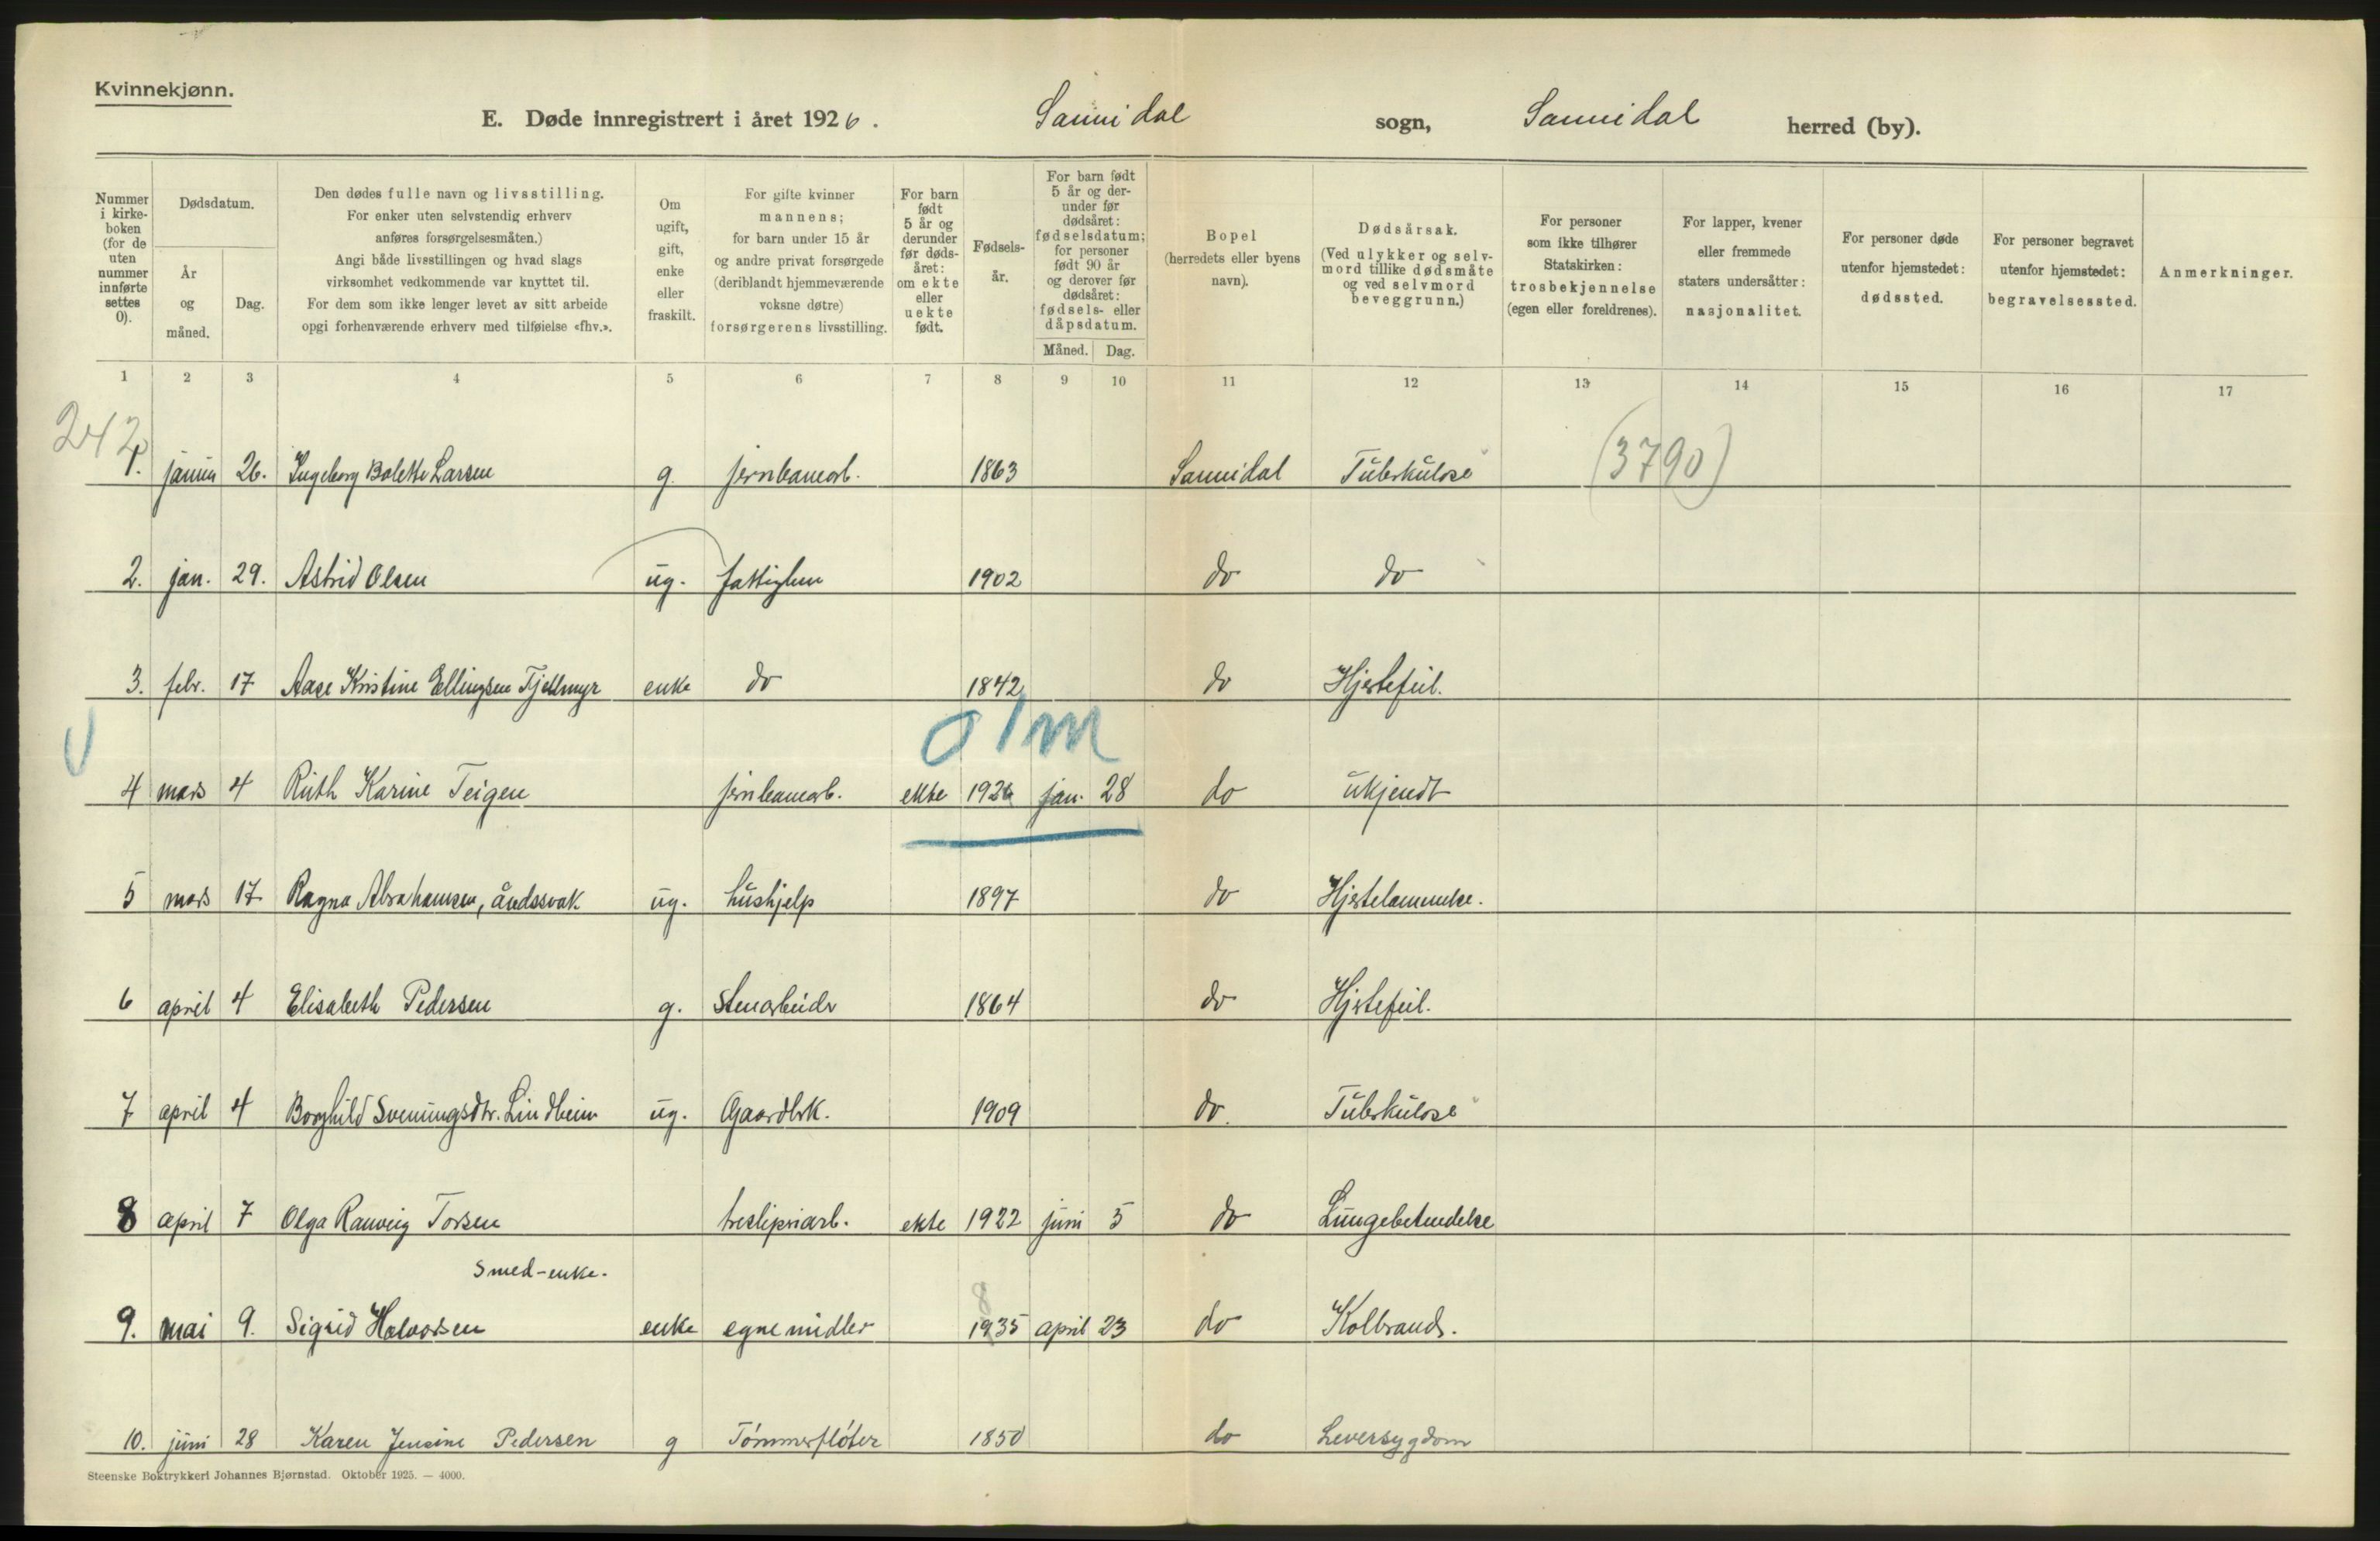 Kvinnekjønn.
E. Døde innregistrert i året 1926. Sannidal sogn, Sannidal herred (by).
Nummer i kirke-boken (for de uten nummer innførte settes 0).
Dødsdatum.
År og måned.
Dag.
Den dødes fulle navn og livsstilling.
For enker uten selvstendig erhverv
anføres forsørgelsesmåten.)
Angi både livsstillingen og hvad slags
virksomhet vedkommende var knyttet til.
For dem som ikke lenger levet av sitt arbeide
opgi forhenværende erhverv med tilføielse «fhv.».
Om ugift, gift, enke eller fraskilt.
For gifte kvinner
mannens;
for barn under 15 år
og andre privat forsørgede
(deriblandt hjemmeværende
voksne døtre)
forsørgerens livsstilling.
For barn født 5 år og derunder før døds-året: om ekte eller uekte født.
Fødsels-år.
For barn født
5 år og der-
under før
dødsåret:
fødselsdatum;
for personer
født 90 år
og derover før
dødsåret:
fødsels- eller
dåpsdatum.
Måned. Dag.
Bopel
(herredets eller byens
navn).
Dødsårsak.
(Ved ulykker og selv-
mord tillike dødsmåte
og ved selvmord
beveggrunn.)
For personer
som ikke tilhører
Statakirken:
trosbekjennelse
(egen eller foreldrenes).
For lapper, kvener
eller fremmede
staters undersåtter:
nasjonalitet.
For personer døde
utenfor hjemstedet:
dødssted.
For personer begravet
utenfor hjemstedet:
begravelsessted.
Anmerkninger.
1 2 3 4 5 6 7 8 9 10 11 12 13 14 15 16 17
242
1. januar 26. Ingeborg Bolette Larsen g. jernbanearb. 1863 Sannidal Tuberkulose (3790)
2. jan. 29. Astrid Olsen ug. fattiglem 1902 do do
3. febr. 17 Aase Kristine Ellingsen Tjellmyr enke do 1842 do Hjertefeil.
0 1 m
4 mars 4 Ruth Karine Teigen jernbanearb. ekte 1926 jan. 28 do ukjendt
5 mars 17 Ragna Abrahamsen, åndssvak ug. hushjelp 1897 do Hjertelammelse.
6 april 4 Elisabeth Pedersen g. Stenarbeider 1864 do Hjertefeil.
7 april 4 Borghild Sveinungsdtr. Lindheim ug. Gaardbrk. 1909 do. Tuberkulose
8 april 7 Olga Ranveig Torsen tresliperiarb. ekte 1922 juni 5 do Lungebetendelse
Smed-enke.
8
9. mai 9. Sigrid Halvorsen enke egne midler 1935 april 23 do Kolbrand.
10. juni 28 Karen Jensine Pedersen g Tømmerfløter 1850 do Leversygdom
Steenske Boktrykkeri Johannes Bjørnstad. Oktober 1925. — 4000.